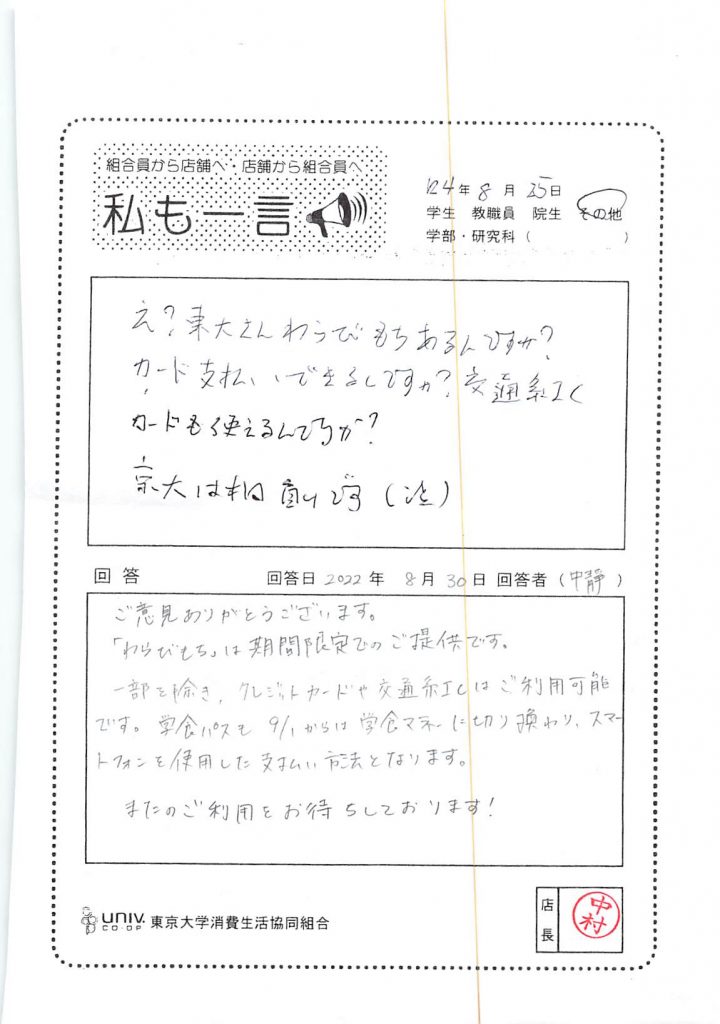 組合員から店舗へ・店舗から組合員へ
私も一言
24年 8月 25日
学生 教職員 院生 その他
学部・研究科 ( )
え?東大さんわらびもちあるんですか?
カード支払いできるんですか?交通系IC
カードも使えるんですか?
京大は相変いです(泣)
回答 回答日 2022年 8月 30日 回答者 (中静)
ご意見ありがとうございます。
「わらびもち」は期間限定でのご提供です。
一部を除き、クレジットカードや交通系ICはご利用可能
です。学食パスも 9/1からは学食マネーに切り換わり、スマー
トフォンを使用した支払い方法となります。
またのご利用をお待ちしております!
UNIV.
CO-OP
東京大学消費生活協同組合
店長
中村